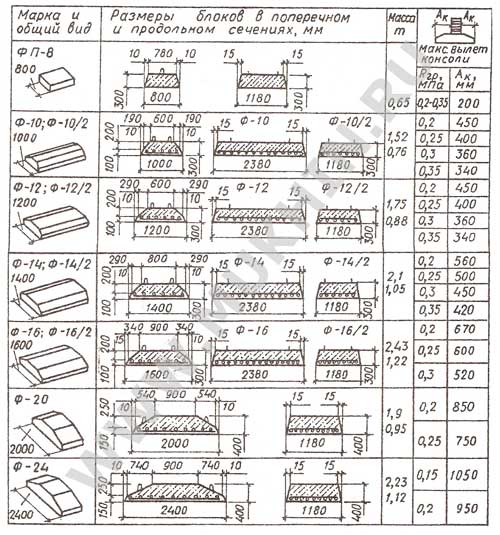 Марка и общий вид
Размеры блоков в поперечном и продольном сечениях, мм
Масса т
Ак Ак
Макс. вылет консоли
Rгр, МПа
Ак, мм
ФП-8
800
10 780 10
800
300
15 15
1180
300
0,65
0,2-0,35 200
Ф-10; Ф-10/2
1000
190 600 190
10 10
200
100
1000
300
Ф-10
15 15
2380
Ф-10/2
1180
300
1,52
0,76
0,2 450
0,25 400
0,3 360
0,35 340
Ф-12; Ф-12/2
1200
290 600 290
10 10
200
100
1200
300
Ф-12
15 15
2380
Ф-12/2
1180
300
1,75
0,88
0,2 450
0,25 400
0,3 360
0,35 340
Ф-14; Ф-14/2
1400
290 800 290
10 10
200
100
1400
300
Ф-14
15 15
2380
Ф-14/2
1180
300
2,1
1,05
0,2 560
0,25 500
0,3 450
0,35 420
Ф-16; Ф-16/2
1600
340 900 340
15 10
200
100
1600
300
Ф-16
15 15
2380
Ф-16/2
1180
300
2,43
1,22
0,2 670
0,25 600
0,3 520
Ф-20
2000
540 900 540
10 10
250
150
2000
400
15 15
1180
400
1,9
0,95
0,2 850
0,25 750
Ф-24
2400
10 740 900 740 10
250
150
2400
400
15 15
1180
400
2,23
1,12
0,15 1050
0,2 950